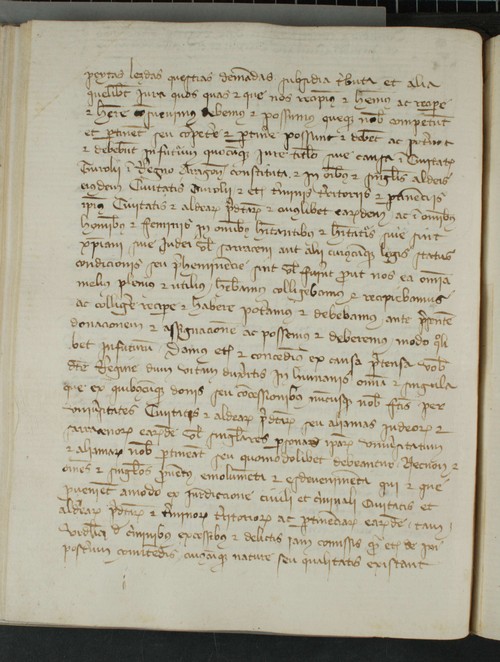 peytas lezdas questias demandas subsidia tributa et alia
quelibet jura quos quas et que nos recipimus et habemus ac recipere
et habere debemus et possumus queque nobis competunt
et pertinent seu competere et pertinere possunt et debent ac poterunt
et debebunt infuturum quocumque jure titulo sive causa in Civitate
Turolii in Regno Aragonum constituta, et in omnibus et singulis aldeis
eiusdem Civitatis Turolii et et terminis territoriis et pertinenciis
ipius Civitatis et aldearum predictarum et cuiuslibet earumdem ac in omnibus
hominibus et feminis in omnibus habitantibus et habitaturis sive sint
xpiani sive judei vel sarraceni aut alii cuiuscumque legis status
condicionis seu preheminencie sint vel fuerint prout nos ea omnia
melius plenius et utilius habebamus colligebamus et recipiebamus
ac colligere recipere et habere poteramus et debebamus ante presentem
donacionem et assignacione ac possemus et deberemus modo quoli
bet infuturum Damus etiam et concedimus ex causa pretensa vobis
dicte Regine dum vitam duxeritis in humanis omnia et singula
que ex quibuscumque donis seu concessionibus nobis factis per
universitates Civitatis et aldearum predictarum seu aljamas judeorum et
sarracenorum earumdem vel singulares personas ipsarum universitatum
et aljamarum nobis pertineant seu quomodolibet debeantur. Necnon et
omnes et singulos proventus emolumenta et esdevenimenta qui et que
provenient amodo ex jurediccione civili et criminali Civitatis et
aldearum predictarum et terminorum territoriorum ac pertinenciarum earumdem tam
videlicet de criminibus excessibus et delictis jam comissis quam etiam de in
posterum comitendis cuiuscumque nature seu qualitatis existant